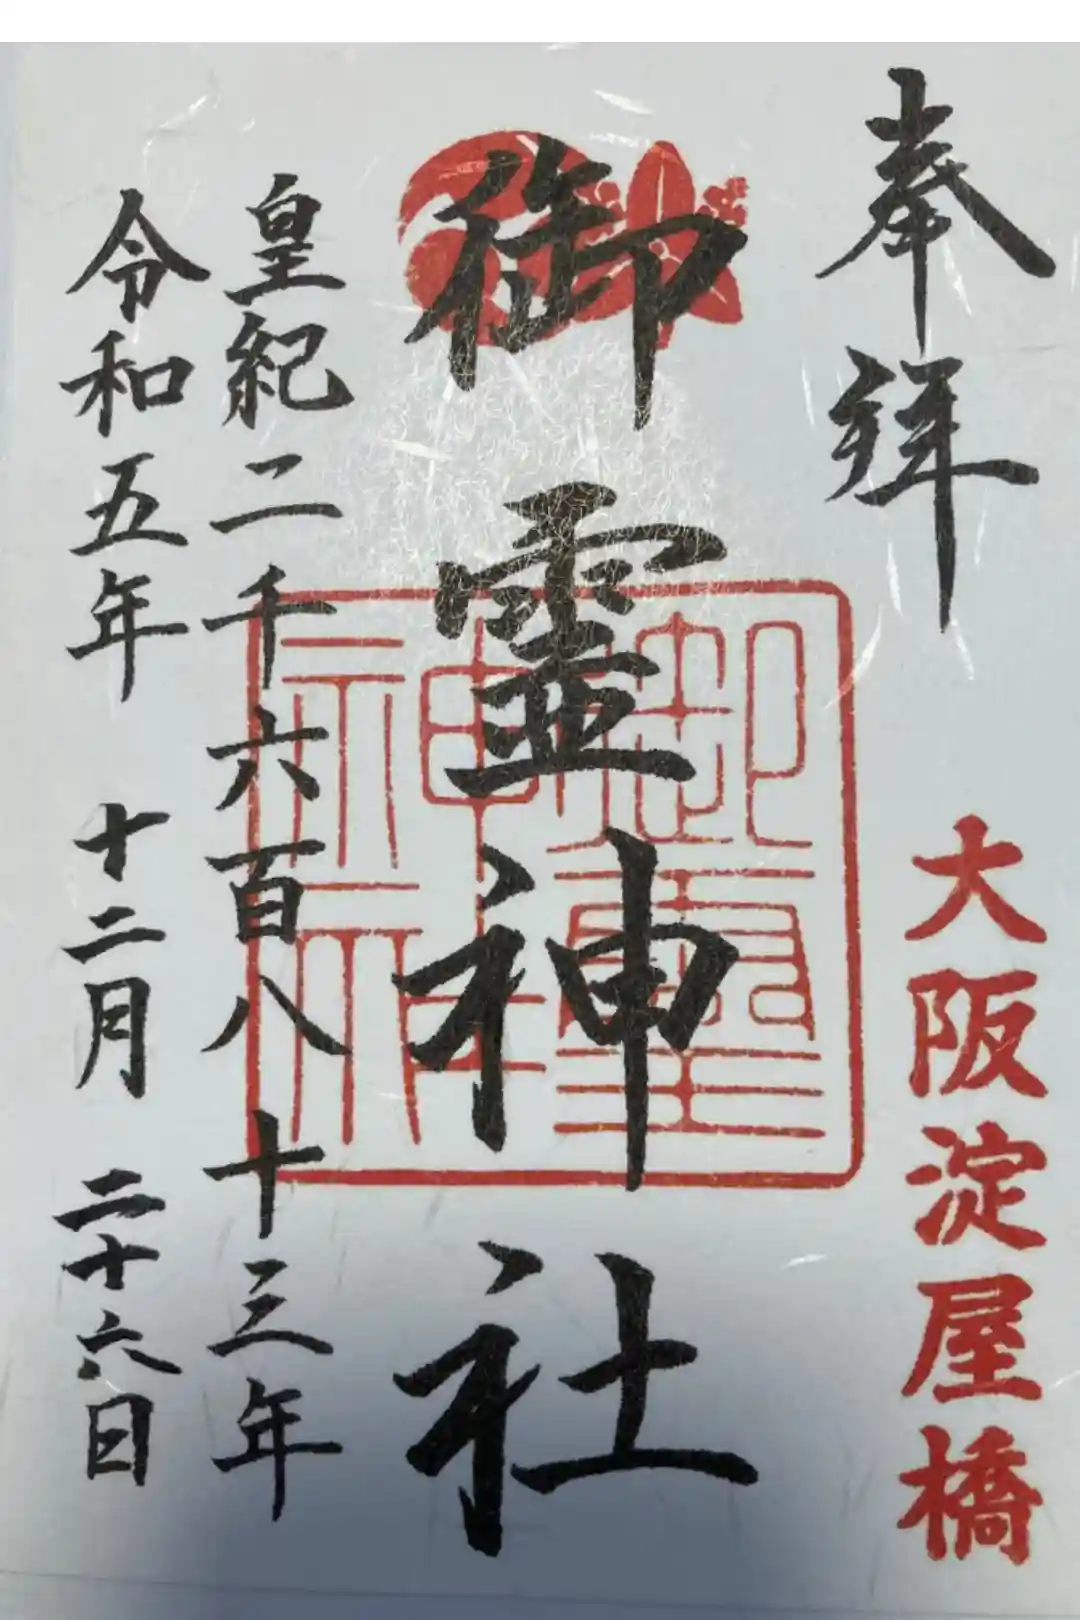 奉拝
大阪淀屋橋
御霊神社
御霊神社
皇紀二千六百八十三年
令和五年 十二月 二十六日